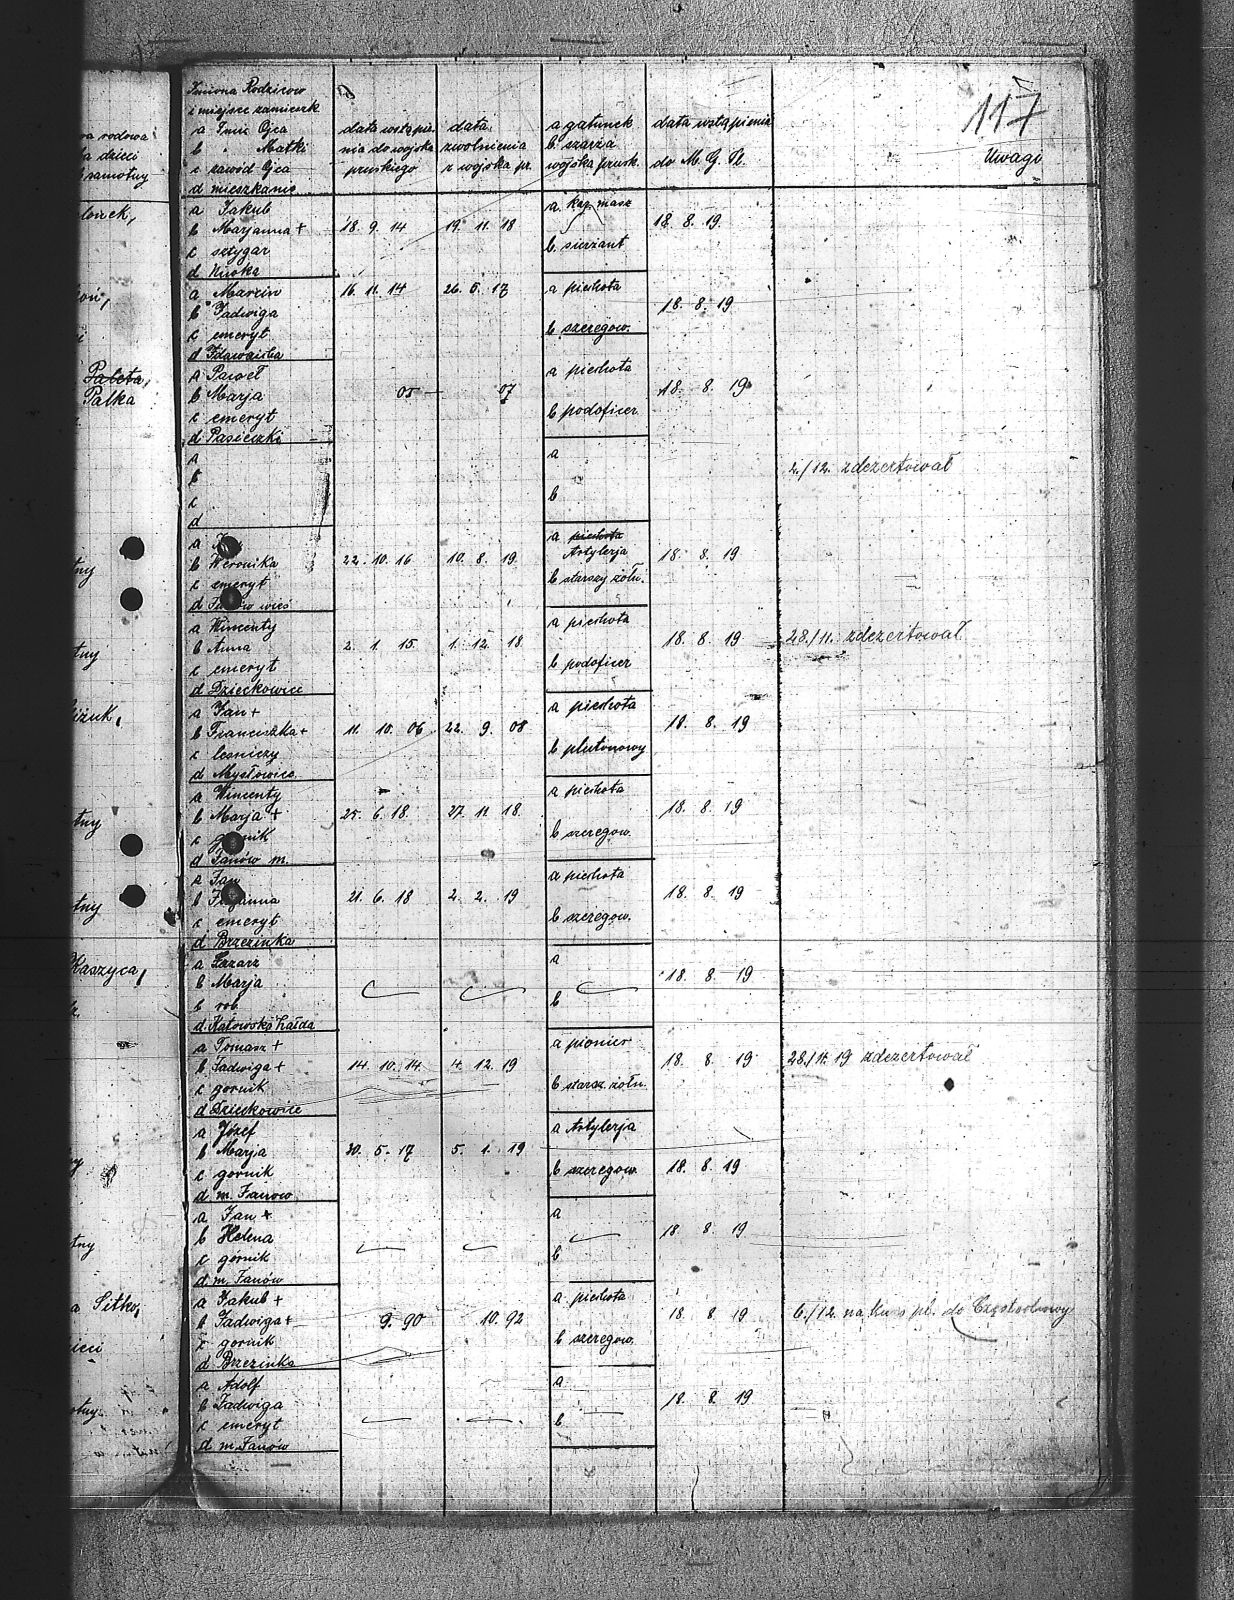 117
Imiona Rodziców
i miejsce zamieszk
a Imię Ojca
b " Matki
c zawód Ojca
d mieszkanie
data wstąpie.
nia do wojska
pruskiego
data
zwolnienia
z wojska pr.
a gatunek
b szarża
wojska prusk.
data wstąpienia
do M. G. Śl.
Uwagi
a Jakub
b Marjanna +
c sztygar
d
18. 9. 14
19. 11. 18
a kar. masz
b. sierżant
18. 8. 19.
a Marcin
b Jadwiga
c emeryt
d
16. 11. 14
26. 5. 17
a piechota
b szeregow.
18. 8. 19
a Paweł
b Marja
c emeryt
d Pasieczki
05 —
07
a piechota
b podoficer
18. 8. 19
Paleta,
Palka
a
b
c
d
a
b
2./12. zdezertował
a
b Weronika
c emeryt
d wieś
22. 10. 16
10. 8. 19
a piechota
Artylerja
b starszy żołn.
18. 8. 19
a Wincenty
b Anna
c emeryt
d Dzieckowice
2. 1. 15.
1. 12. 18
a piechota
b podoficer
18. 8. 19
28./11. zdezertował
a Jan +
b Franciszka +
c lesniczy
d Mysłowice
11. 10. 06
22. 9. 08
a piechota
b plutonowy
18. 8. 19
a Wincenty
b Marja +
c górnik
d Janów m.
25. 6. 18.
27. 11. 18.
a piechota
b szeregow.
18. 8. 19
a Jan
b
c emeryt
d Brzezinka
21. 6. 18
2. 2. 19
a piechota
b szeregow.
18. 8. 19
Kaszyca,
a Łazarz
b Marja
b rob.
d Katowska hałda
a
b
18. 8. 19
a Tomasz +
b Jadwiga +
c gornik
d Dzieckowice
14. 10. 14
4. 12. 19
a pionier
b starsz. żołn.
18. 8. 19
28./11. 19 zdezertował
a Józef
b Marja
c gornik
d m. Janow
30. 5. 17
5. 1. 19
a Artylerja
b szeregow.
18. 8. 19
a Jan +
b Helena
c górnik
d m. Janów
a
b
18. 8. 19
a Sitko,
a Jakub +
b Jadwiga +
c gornik
d Brzezinka
9. 90
10. 92
a piechota
b szeregow.
18. 8. 19
6./12. na kurs pl. do Częstochowy
a Adolf
b Jadwiga
c emeryt
d m. Janów
a
b
18. 8. 19